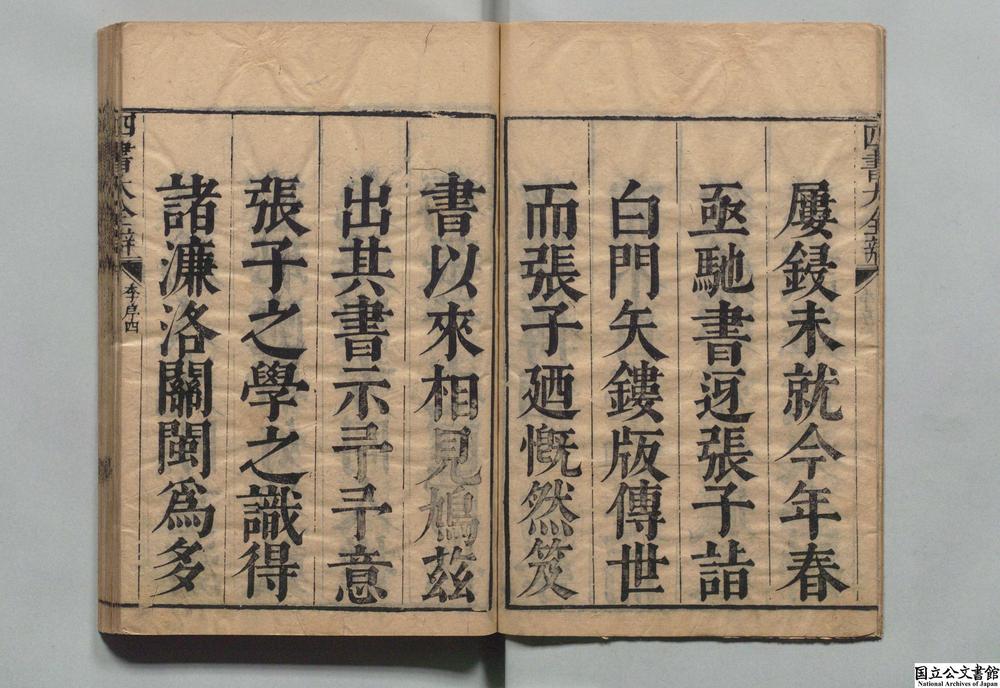 屢鋟未就今年春
亟馳書迓張子詣
白門矢鏤版傳世
而張子廼慨然笈
書以來相見鳩茲
出其書示予予意
張子之學之識得
諸濂洛關閩為多
四書大全辯
季序四
四書大全辯
国立公文書館
National Archives of Japan